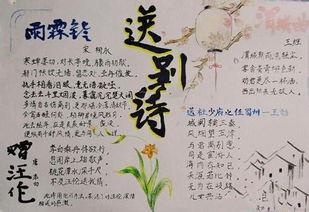 送别诗
雨霖铃
宋 柳永
寒蝉凄切,对长亭晚,骤雨初歇。
都门帐饮无绪,留恋处,兰舟催发。
执手相看泪眼,竟无语凝噎。
念去去千里烟波,暮霭沉沉楚天阔。
多情自古伤离别,更那堪冷落清秋节。
今宵酒醒何处,杨柳岸晓风残月。
此去经年,应是良辰好景虚设。
便纵有千种风情,更与何人说。
赠汪伦
唐 李白
李白乘舟将欲行,
忽闻岸上踏歌声。
桃花潭水深千尺,
不及汪伦送我情。
王维
渭城朝雨浥轻尘,
客舍青青柳色新。
劝君更尽一杯酒,
西出阳关无故人。
送杜少府之任蜀州—王勃
城阙辅三秦,
风烟望五津。
与君离别意,
同是宦游人。
海内存知己,
天涯若比邻。
无为在歧路,
儿女共沾巾。